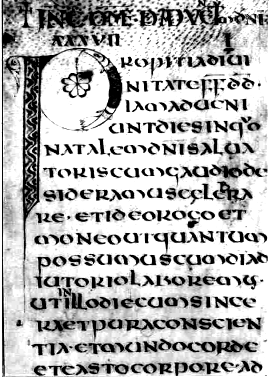 INC DE ADUENTU DNI
XXXVII I
PROPITIA DIUI
NITATE FF DD
IAM ADUENI
UNT DIES IN QUO
NATALEM DNI SALUA
TORIS CUM GAUDIO DE
SIDERAMUS CELEBRA
RE · ET IDEO ROGO ET
MONEO UT QUANTUM
POSSUMUS CUM DI AD
IUTORIO LABOREMUS ·
UT IN ILLO DIE CUM SINCE
RA ET PURA CONSCIEN
TIA · ET MUNDO CORDE
ET CASTO CORPORE · AD